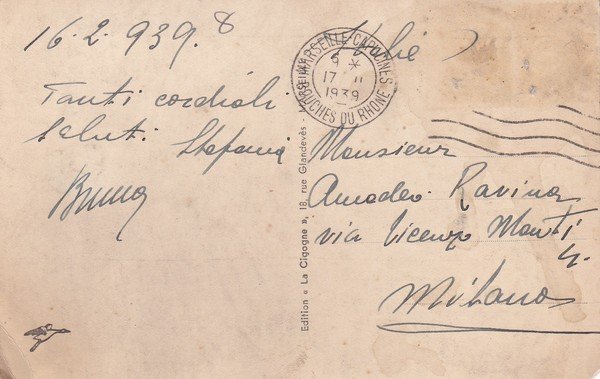 16.2.939.8
Tanti cordiali
saluti Stefania
Bruna
Edition « La Cigogne », 18, rue Glandevès - MARSEILLE
MARSEILLE-CAPUCINES
9 *
17 II
1939
BOUCHES DU RHONE
Italie
Monsieur
Amadeo Ravina
via Vicenzo Monti
Milano